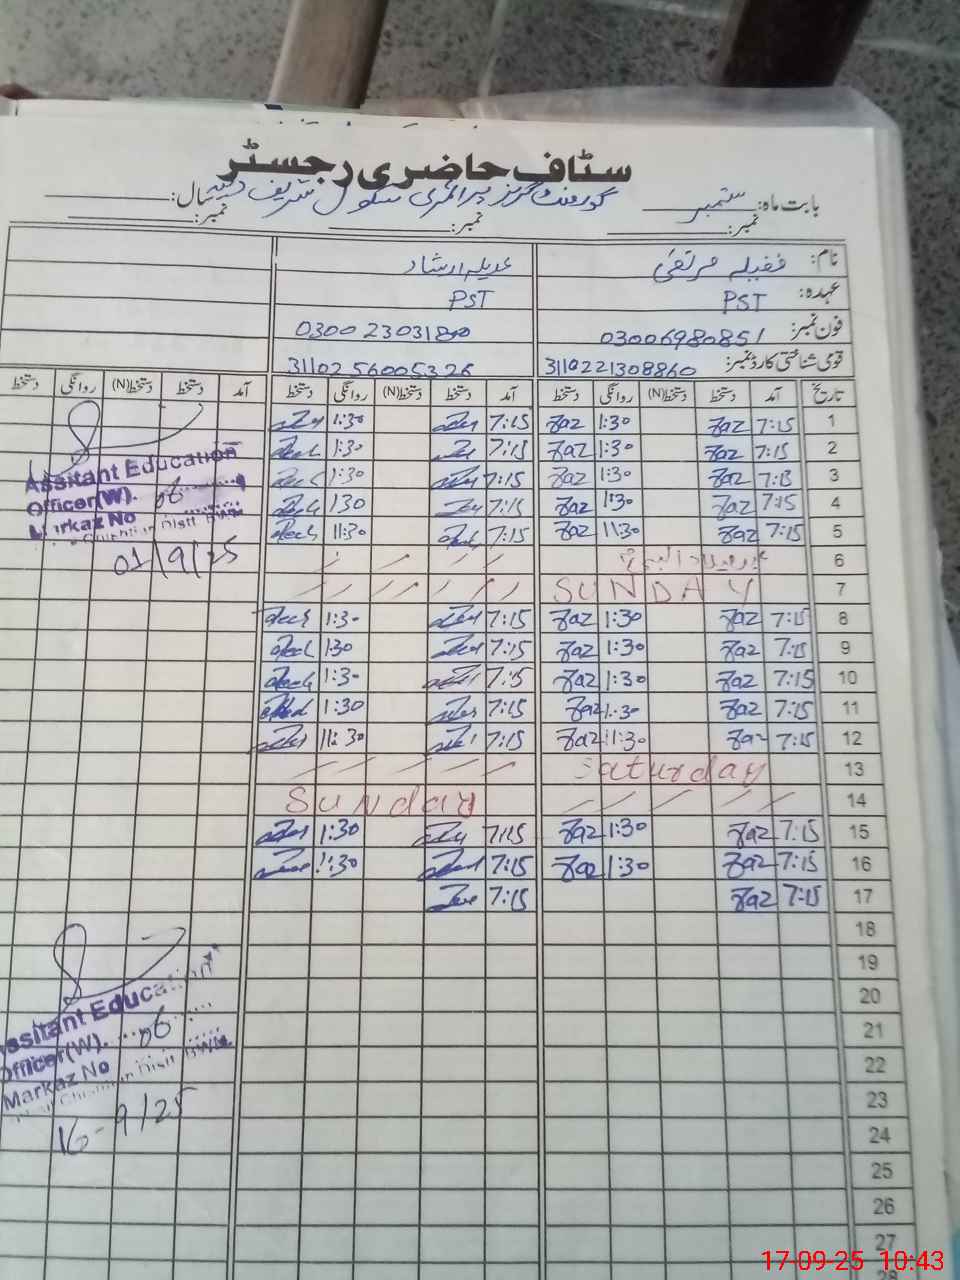 سٹاف حاضری رجسٹر
بابت ماہ: ستمبر گورنمنٹ گرلز پرائمری سکول شریف سال:
نمبر: نمبر: نمبر:
نام: مرتضیٰ عدیلہ ارشاد
عہدہ: PST PST
فون نمبر: 03006980851 0300 2303180
قومی شناختی کارڈ نمبر: 3110221308860 31102 56005326
تاریخ آمد دستخط دستخط(N) روانگی دستخط آمد دستخط دستخط(N) روانگی دستخط آمد دستخط دستخط(N) روانگی دستخط
1 7:15 Faz 1:30 Faz 7:15 1:30
2 7:15 Faz 1:30 Faz 7:15 1:30
3 7:15 Faz 1:30 Faz 7:15 1:30
4 7:15 Faz 1:30 Faz 7:15 130
5 7:15 Faz 11:30 Faz 7:15 11:30
6
7 SUNDAY
8 7:15 Faz 1:30 Faz 7:15 1:30
9 7:15 Faz 1:30 Faz 7:15 130
10 7:15 Faz 1:30 Faz 7:15 1:30
11 7:15 Faz 1:30 Faz 7:15 1:30
12 7:15 Faz 11:30 Faz 7:15 11:30
13 Saturday
14 Sunday
15 7:15 Faz 1:30 Faz 7:15 1:30
16 7:15 Faz 1:30 Faz 7:15 1:30
17 7:15 Faz 7:15
18
19
20
21
22
23
24
25
26
27
28
Assitant Education
Officer(W). 06
Markaz No
Distt. BWN
01/9/25
Assitant Education
Officer(W). 06
Markaz No
Distt. BWN
16-9/25
17-09-25 10:43